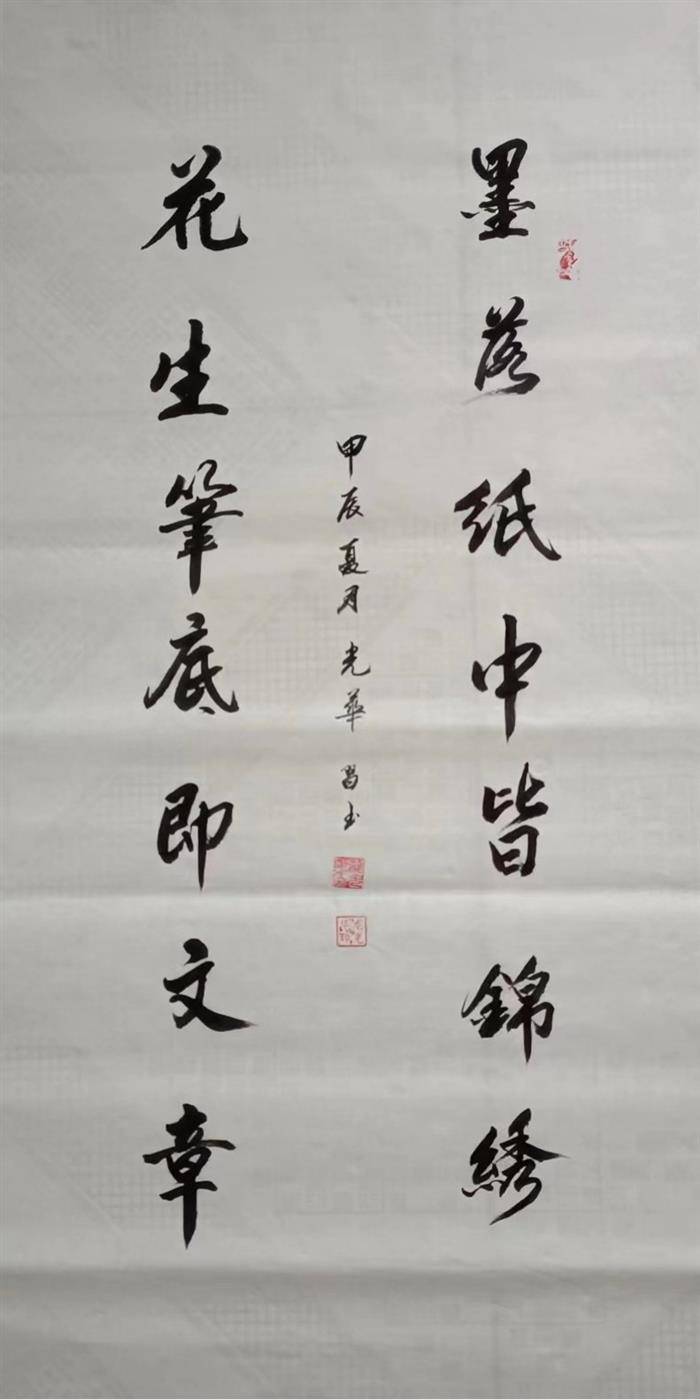 墨落纸中皆錦綉
花生筆底即文章
甲辰夏月光華昌玉